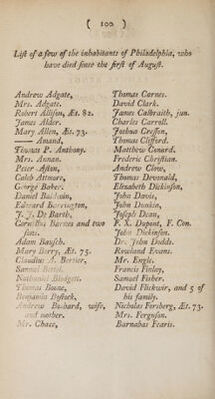 ( 100 )
List of a few of the inhabitants of Philadelphia, who
have died since the first of August.
Andrew Adgate,
Mrs. Adgate.
Robert Allison, Æt. 82.
James Alder.
Mary Allen, Æt. 73.
—— Amand,
Thomas P. Anthony.
Mrs. Annan.
Peter Aston,
Caleb Attmore,
George Baker.
Daniel Baldwin,
Edward Barrington,
J. J. De Barth,
Cornelius Barnes and two
sons.
Adam Bausch.
Mary Berry, Æt. 75.
Claudius A. Bertier,
Samuel Bettel.
Nathaniel Blodget.
Thomas Boone,
Benjamin Bostock,
Andrew Bushard, wife,
and mother.
Mr. Chace,
Thomas Carnes.
David Clark.
James Calbraith, jun.
Charles Carroll.
Joshua Cresson,
Thomas Clifford.
Matthew Conard.
Frederic Christian.
Andrew Clow,
Thomas Devonald,
Elizabeth Dickinson,
John Davis,
John Dunkin,
Joseph Dean,
F. X. Dupont, F. Con.
John Dickinson.
Dr. John Dodds.
Rowland Evans.
Mr. Engle.
Francis Finlay,
Samuel Fisher.
David Flickwir, and 5 of
his family.
Nicholas Forsberg, Æt. 73.
Mrs. Ferguson.
Barnabas Fearis.